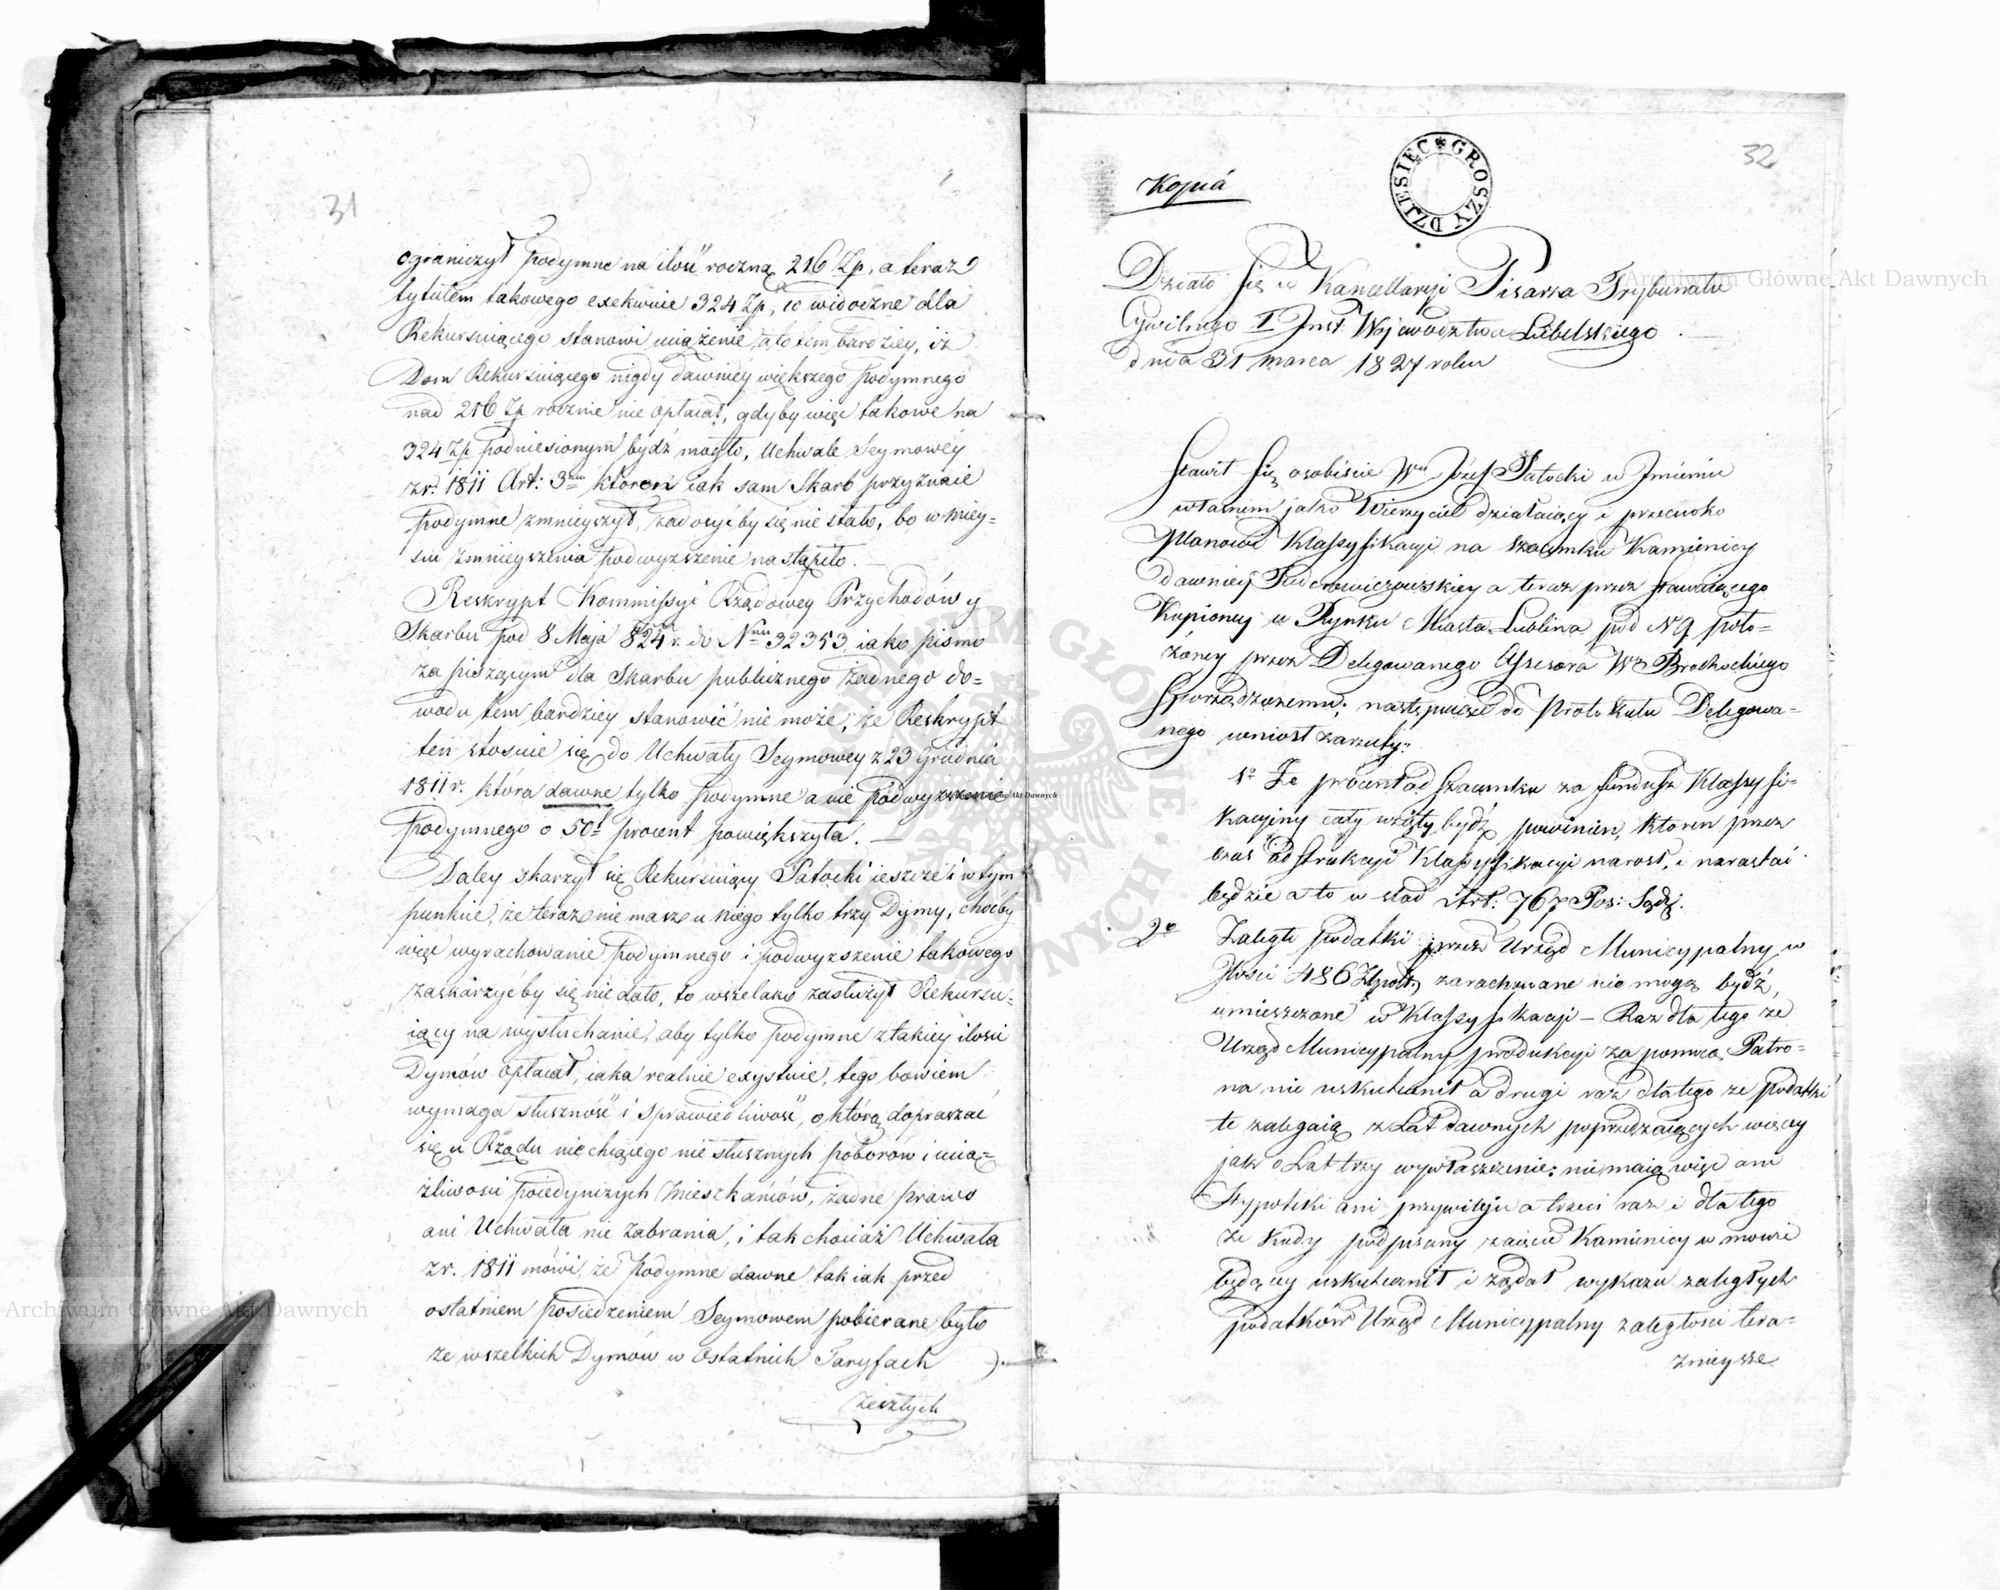 31
ograniczył podymne na ilość roczną 216 Zp, a teraz
tytułem takowego exekwuie 324 Zp, co widoczne dla
Rekursuiącego stanowi uciążenie, a to tem bardziey, iż
Dom Rekursuiącego nigdy dawniey większego podymnego
nad 216 Zp rocznie nie opłacał, gdyby więc takowe na
324 Zp podniesionym bydź mogło, Uchwale Seymowey
z r. 1811 Art: 3 któren iak sam Skarb przyznaie
podymne zmnieyszył, zadosyć by się nie stało, bo w miey=
scu zmnieyszenia podwyższenie nastąpiło.
Reskrypt Kommissyi Rządowey Przychodów y
Skarbu pod 8 Maja 824 r. do Nru 32353, iako pismo
za piszącym dla Skarbu publicznego żadnego do=
wodu tem bardziey stanowić nie może, że Reskrypt
ten stosuie się do Uchwały Seymowey z 23 Grudnia
1811 r. która dawne tylko podymne a nie podwyższenie
podymnego o 50 procent powiększyła.
Daley skarzył się Rekursuiący Patocki ieszcze i w tym
punkcie, że teraz nie masz u niego tylko trzy Dymy, choćby
więc wyrachowanie podymnego i podwyższenie takowego
zaskarżyć by się nie dało, to wszelako zasłużył Rekursu=
iący na wysłuchanie, aby tylko podymne z takiey ilości
Dymów opłacał, iaka realnie exystuie, tego bowiem
wymaga słuszność i sprawiedliwość, o którą dopraszać
się u Rządu nie chcącego nie słusznych poborów i ucią=
żliwości poiedynczych Mieszkańców, żadne prawo
ani Uchwała nie zabrania, i tak chociaż Uchwała
z r. 1811 mówi, że Podymne dawne tak iak przed
ostatniem posiedzeniem Seymowem pobierane było
ze wszelkich Dymów w Ostatnich Taryfach
zeszłych
32
Kopiá
DZIESIĘĆ * GROSZY
Działo się w Kancellaryi Pisarza Trybunału
Cywilnego I Inst. Województwa Lubelskiego
dnia 31 marca 1827 roku
Stawił się osobiście Wny Józef Patocki w Imieniu
własnem jako Wierzyciel działaiący i przeciwko
Planowi Klassyfikacyi na szacunku Kamienicy
dawniey Faderowiczowskiey a teraz przez stawaiącego
Kupioney w Rynku Miasta Lublina pod N 9 poło=
żoney przez Delegowanego Assesora Wo Brochockiego
sporządzonemu; następuiące do Protokułu Delegowa=
nego wniosł zarzuty:
1o Że procent od szacunku za fundusz Klassyfi=
kacyiny cały wzięty bydź powinien, ktoren przez
czas obstrukcyi Klassyfikacyi narosł, i narastać
będzie a to w ślad Art: 767 Pos: Sądz.
2o Zaległe podatki przez Urząd Municypalny w
Ilości 486 Złpols zarachowane nie mogą bydź
umieszczone w Klassyfikacyi – Raz dla tego że
Urząd Municypalny produkcyi za pomocą Patro=
na nie uskutecznił a drugi raz dlatego że podatki
te zalegaią z Lat dawnych poprzedzaiących więcey
jak o Lat trzy wywłaszczenie; nie maią więc ani
Hypoteki ani przywileju a trzeci raz i dla tego
że kiedy podpisany zaięcie Kamienicy w mowie
będącey uskutecznił i żądał wykazu zaległych
podatków Urząd Municypalny zaległości tera=
znieysze
Archiwum Główne Akt Dawnych
Archiwum Główne Akt Dawnych